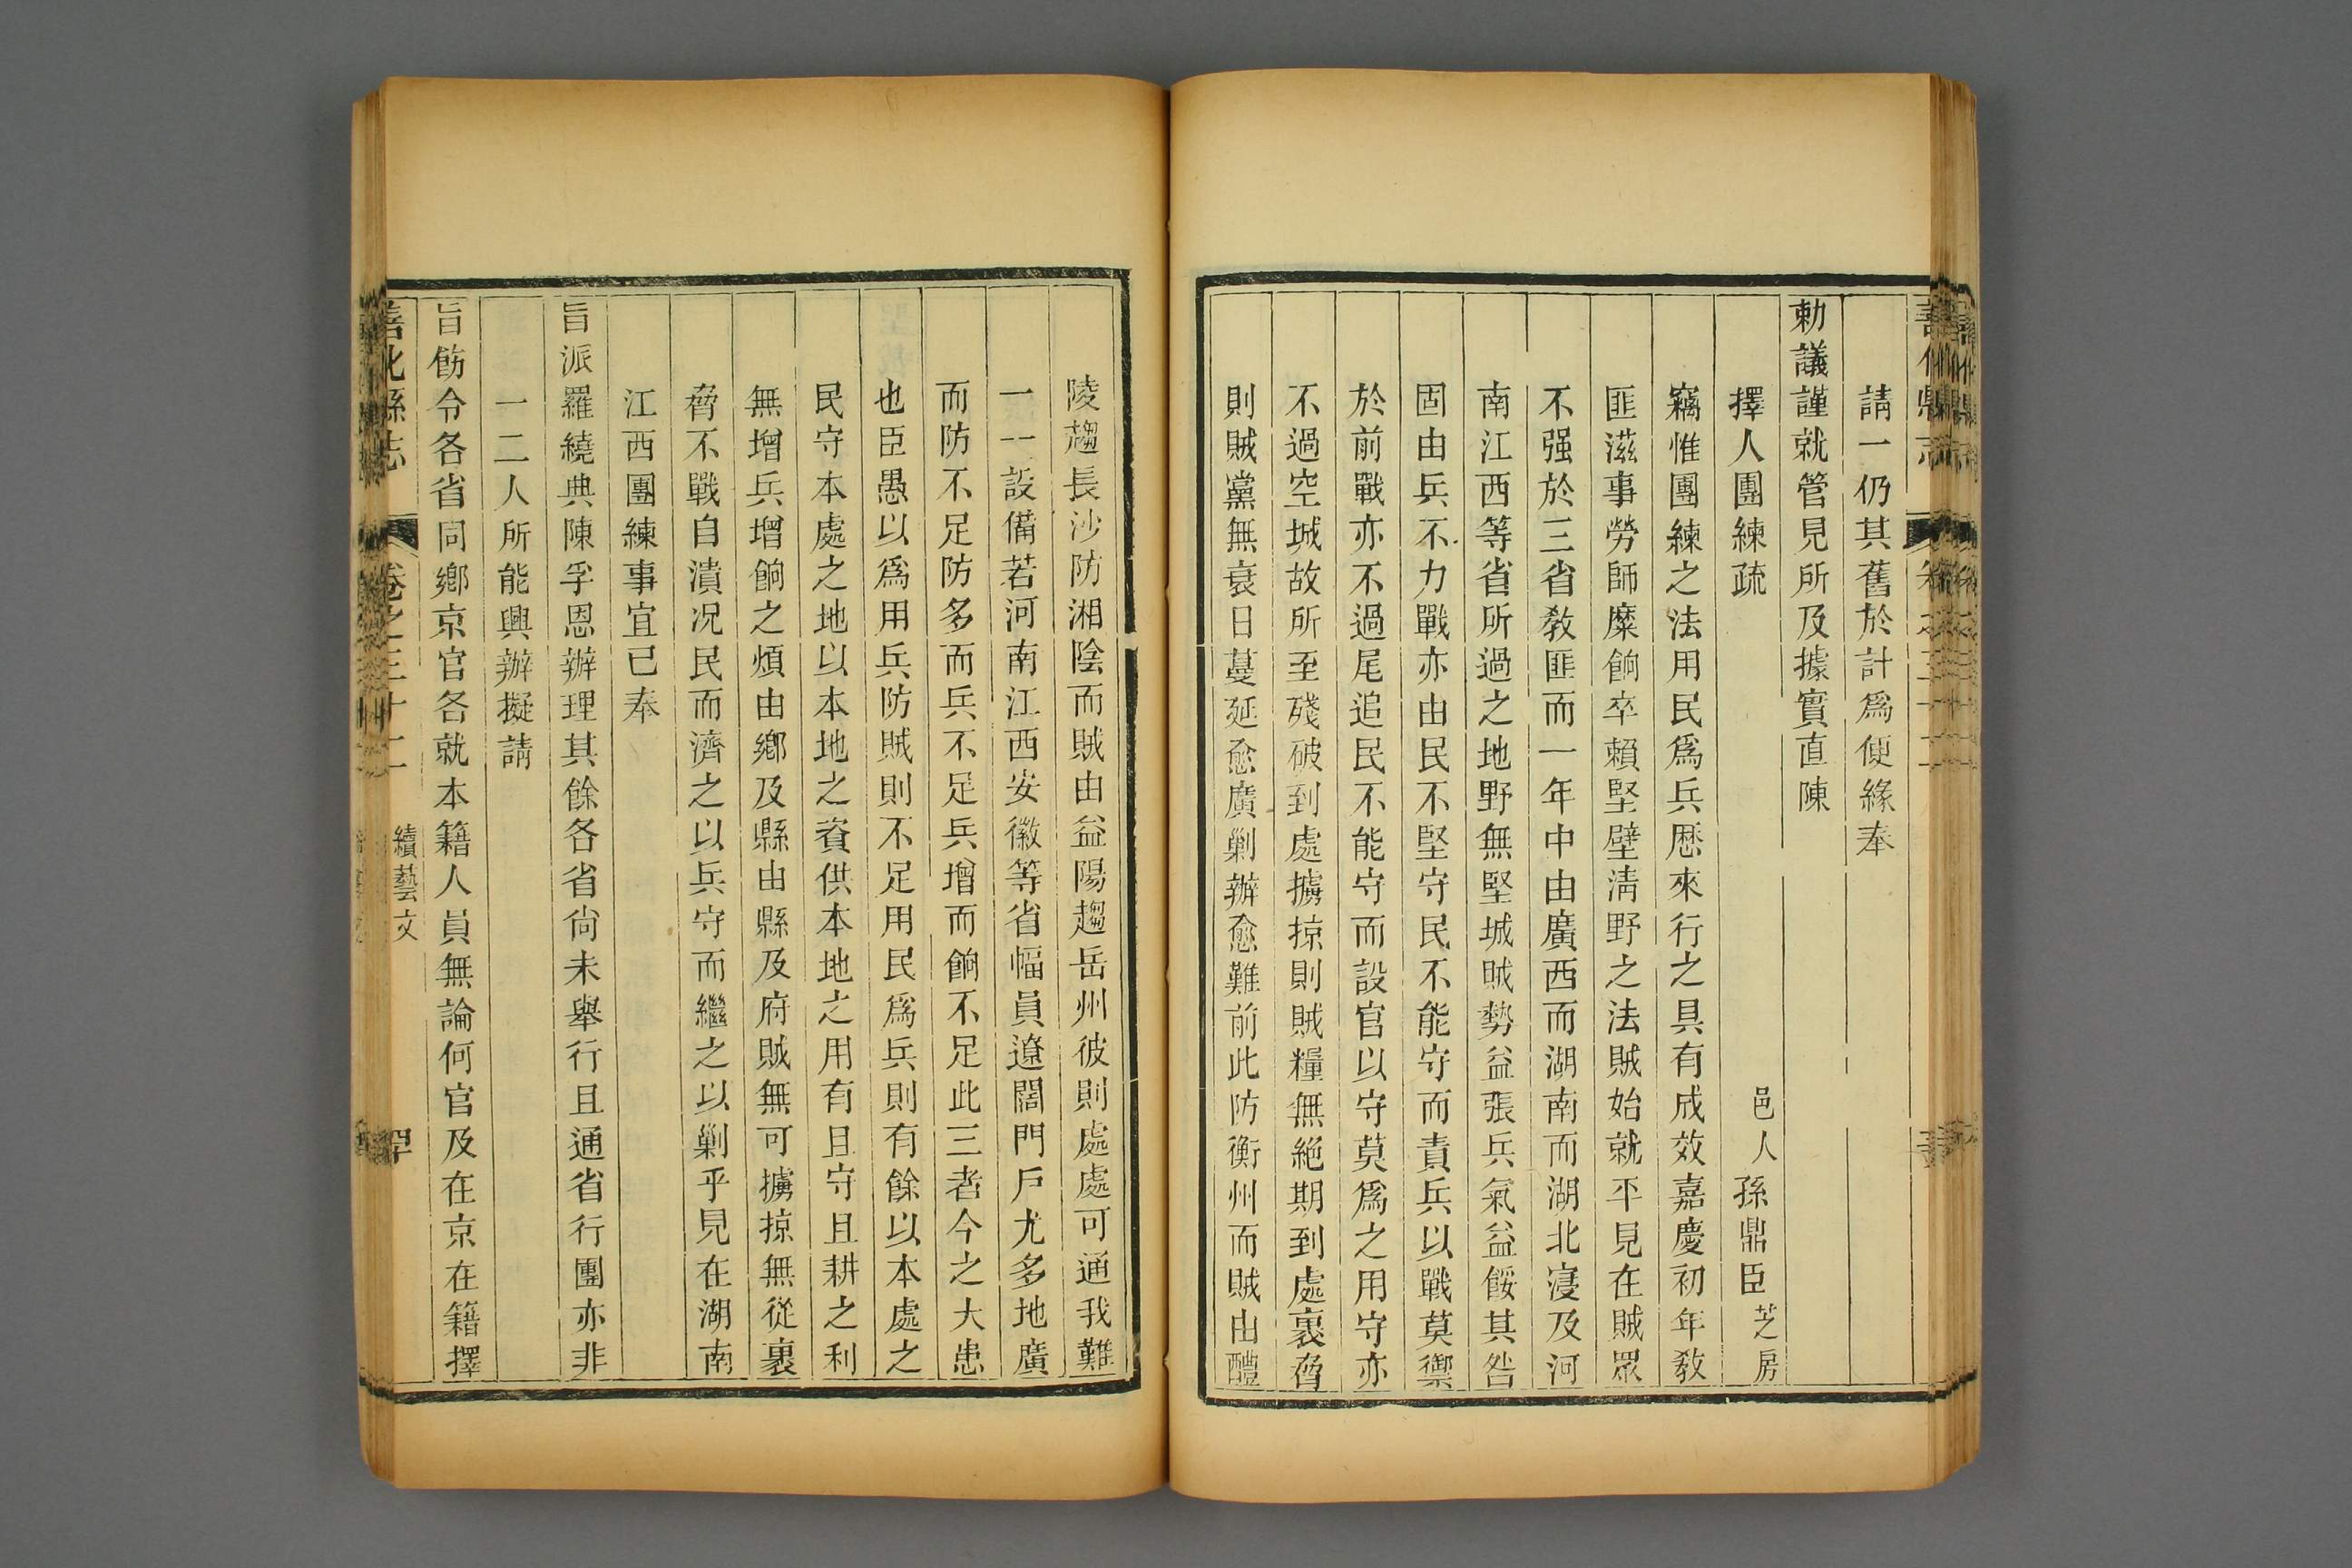 請一仍其舊於計爲便緣奉
勅議謹就管見所及據實直陳
擇人團練疏　邑人孫鼎臣芝房
竊惟團練之法用民爲兵厯來行之具有成效嘉慶初年教
匪滋事勞師糜餉卒賴堅壁清野之法賊始就平見在賊眾
不强於三省教匪而一年中由廣西而湖南而湖北寖及河
南江西等省所過之地野無堅城賊勢益張兵氣益餒其咎
固由兵不力戰亦由民不堅守民不能守而責兵以戰莫禦
於前戰亦不過尾追民不能守而設官以守莫爲之用守亦
不過空城故所至殘破到處擄掠則賊糧無絶期到處裹脅
則賊黨無衰日蔓延愈廣剿辦愈難前此防衡州而賊由醴
陵趨長沙防湘陰而賊由益陽趨岳州彼則處處可通我難
一一設備若河南江西安徽等省幅員遼闊門戶尤多地廣
而防不足防多而兵不足兵增而餉不足此三者今之大患
也臣愚以爲用兵防賊則不足用民爲兵則有餘以本處之
民守本處之地以本地之資供本地之用有且守且耕之利
無增兵增餉之煩由鄉及縣由縣及府賊無可擄掠無從裹
脅不戰自潰况民而濟之以兵守而繼之以剿乎見在湖南
江西團練事宜已奉
旨派羅繞典陳孚恩辦理其餘各省尚未舉行且通省行團亦非
一二人所能興辦擬請
旨飭令各省同鄉京官各就本籍人員無論何官及在京在籍擇
善化縣志　卷之三十二　續藝文